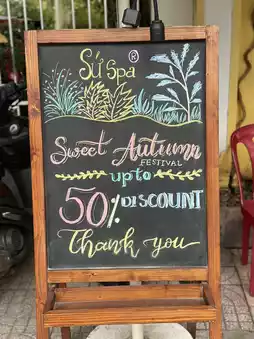 Sứ Spa ®
Sweet Autumn
FESTIVAL
upto
50% DISCOUNT
Thank you